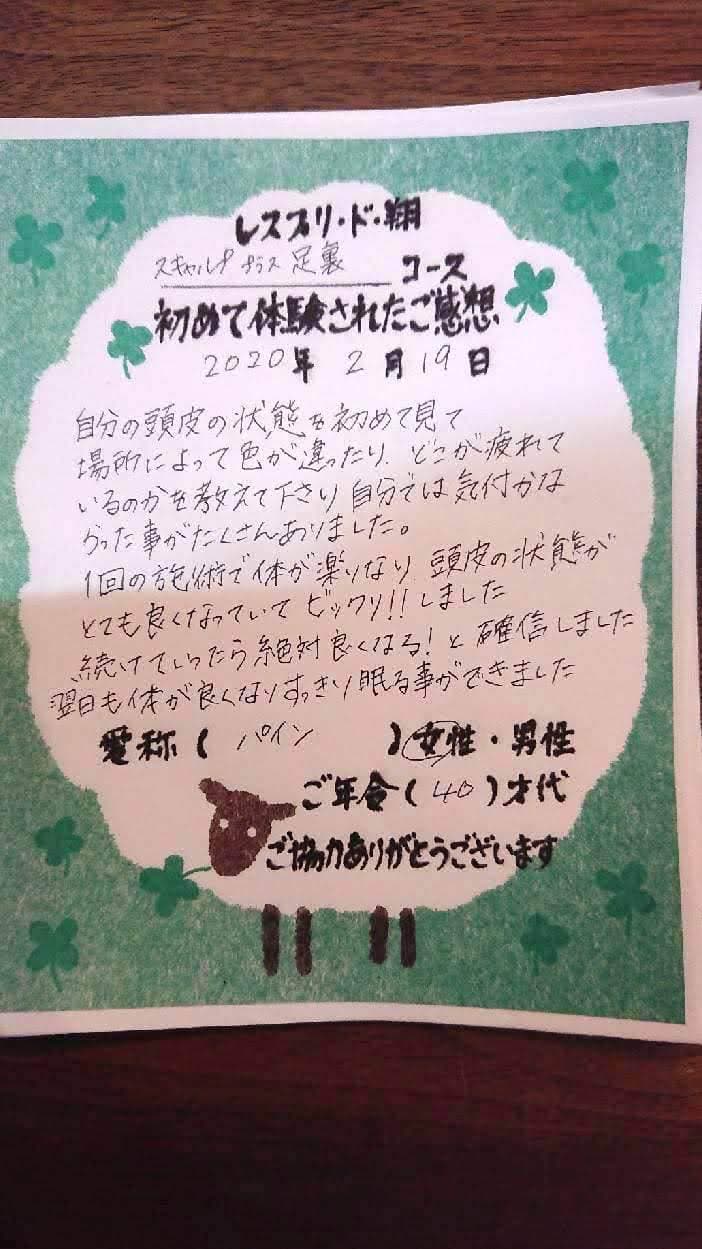 レスプリ・ド・翔
スキャルプ プラス 足裏 コース
初めて体験されたご感想
2020年 2月 19日
自分の頭皮の状態を初めて見て
場所によって色が違ったり、どこが疲れて
いるのかを教えて下さり 自分では気付かな
かった事がたくさんありました。
1回の施術で体が楽になり 頭皮の状態が
とても良くなっていて ビックリ!!しました
続けていったら絶対良くなる!と確信しました
翌日も体が良くなりすっきり眠る事ができました
愛称( パイン ) 女性・男性
ご年令( 40 )才代
ご協力ありがとうございます